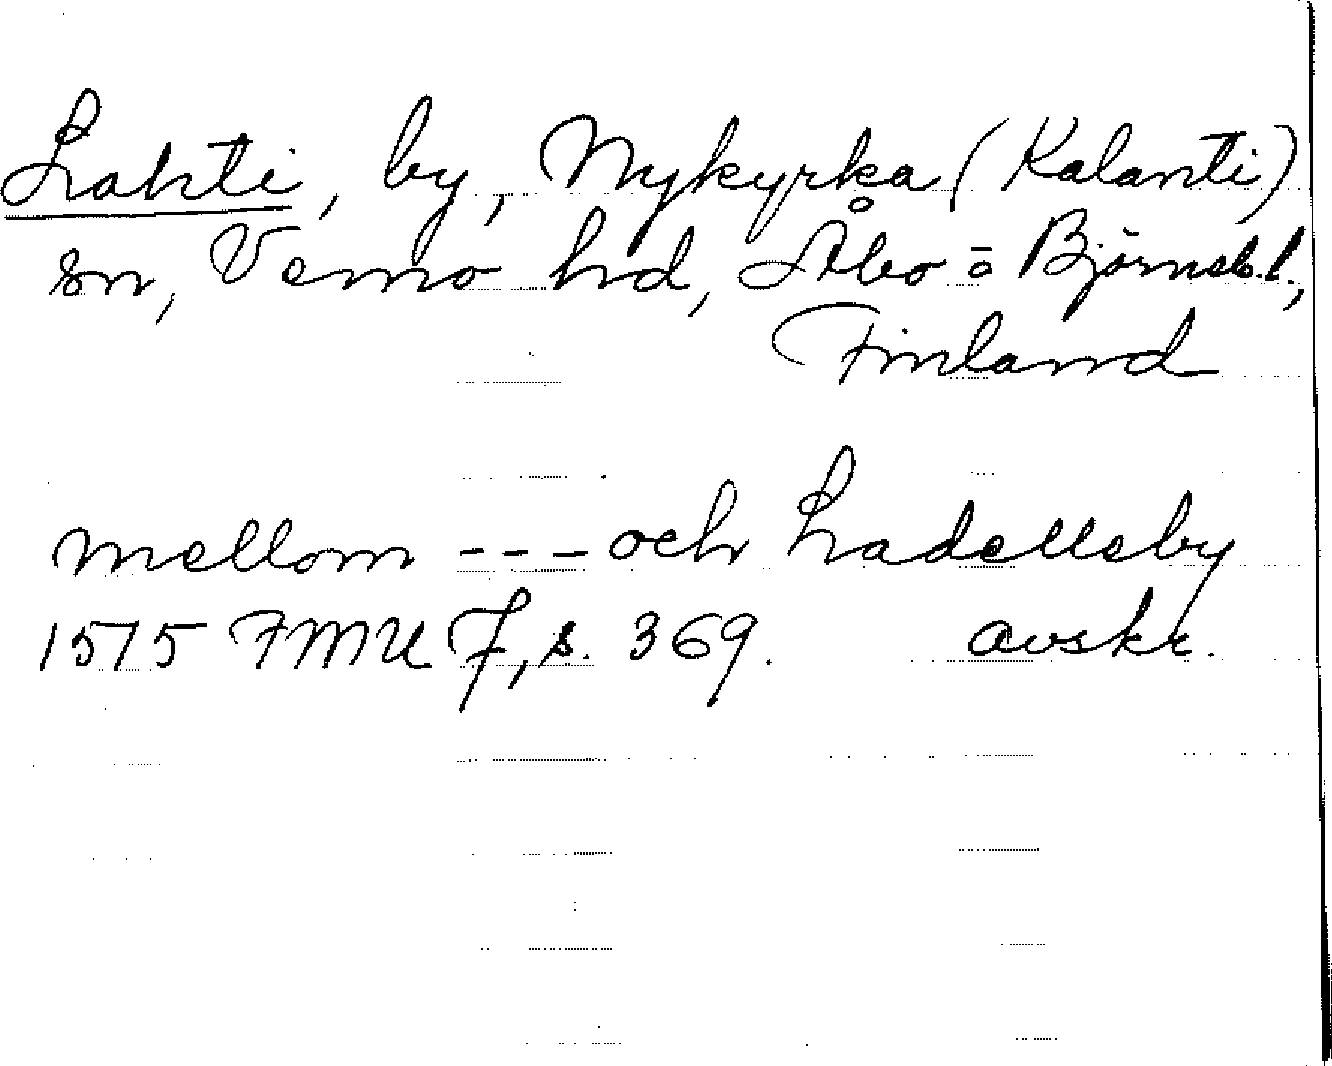 Lahti, by, Nykyrka (Kalanti)
sn, Vemo hd, Åbo o Björneb.l.,
Finland
mellom --- och Ladelleby
1575 FMU F, s. 369. avskr.